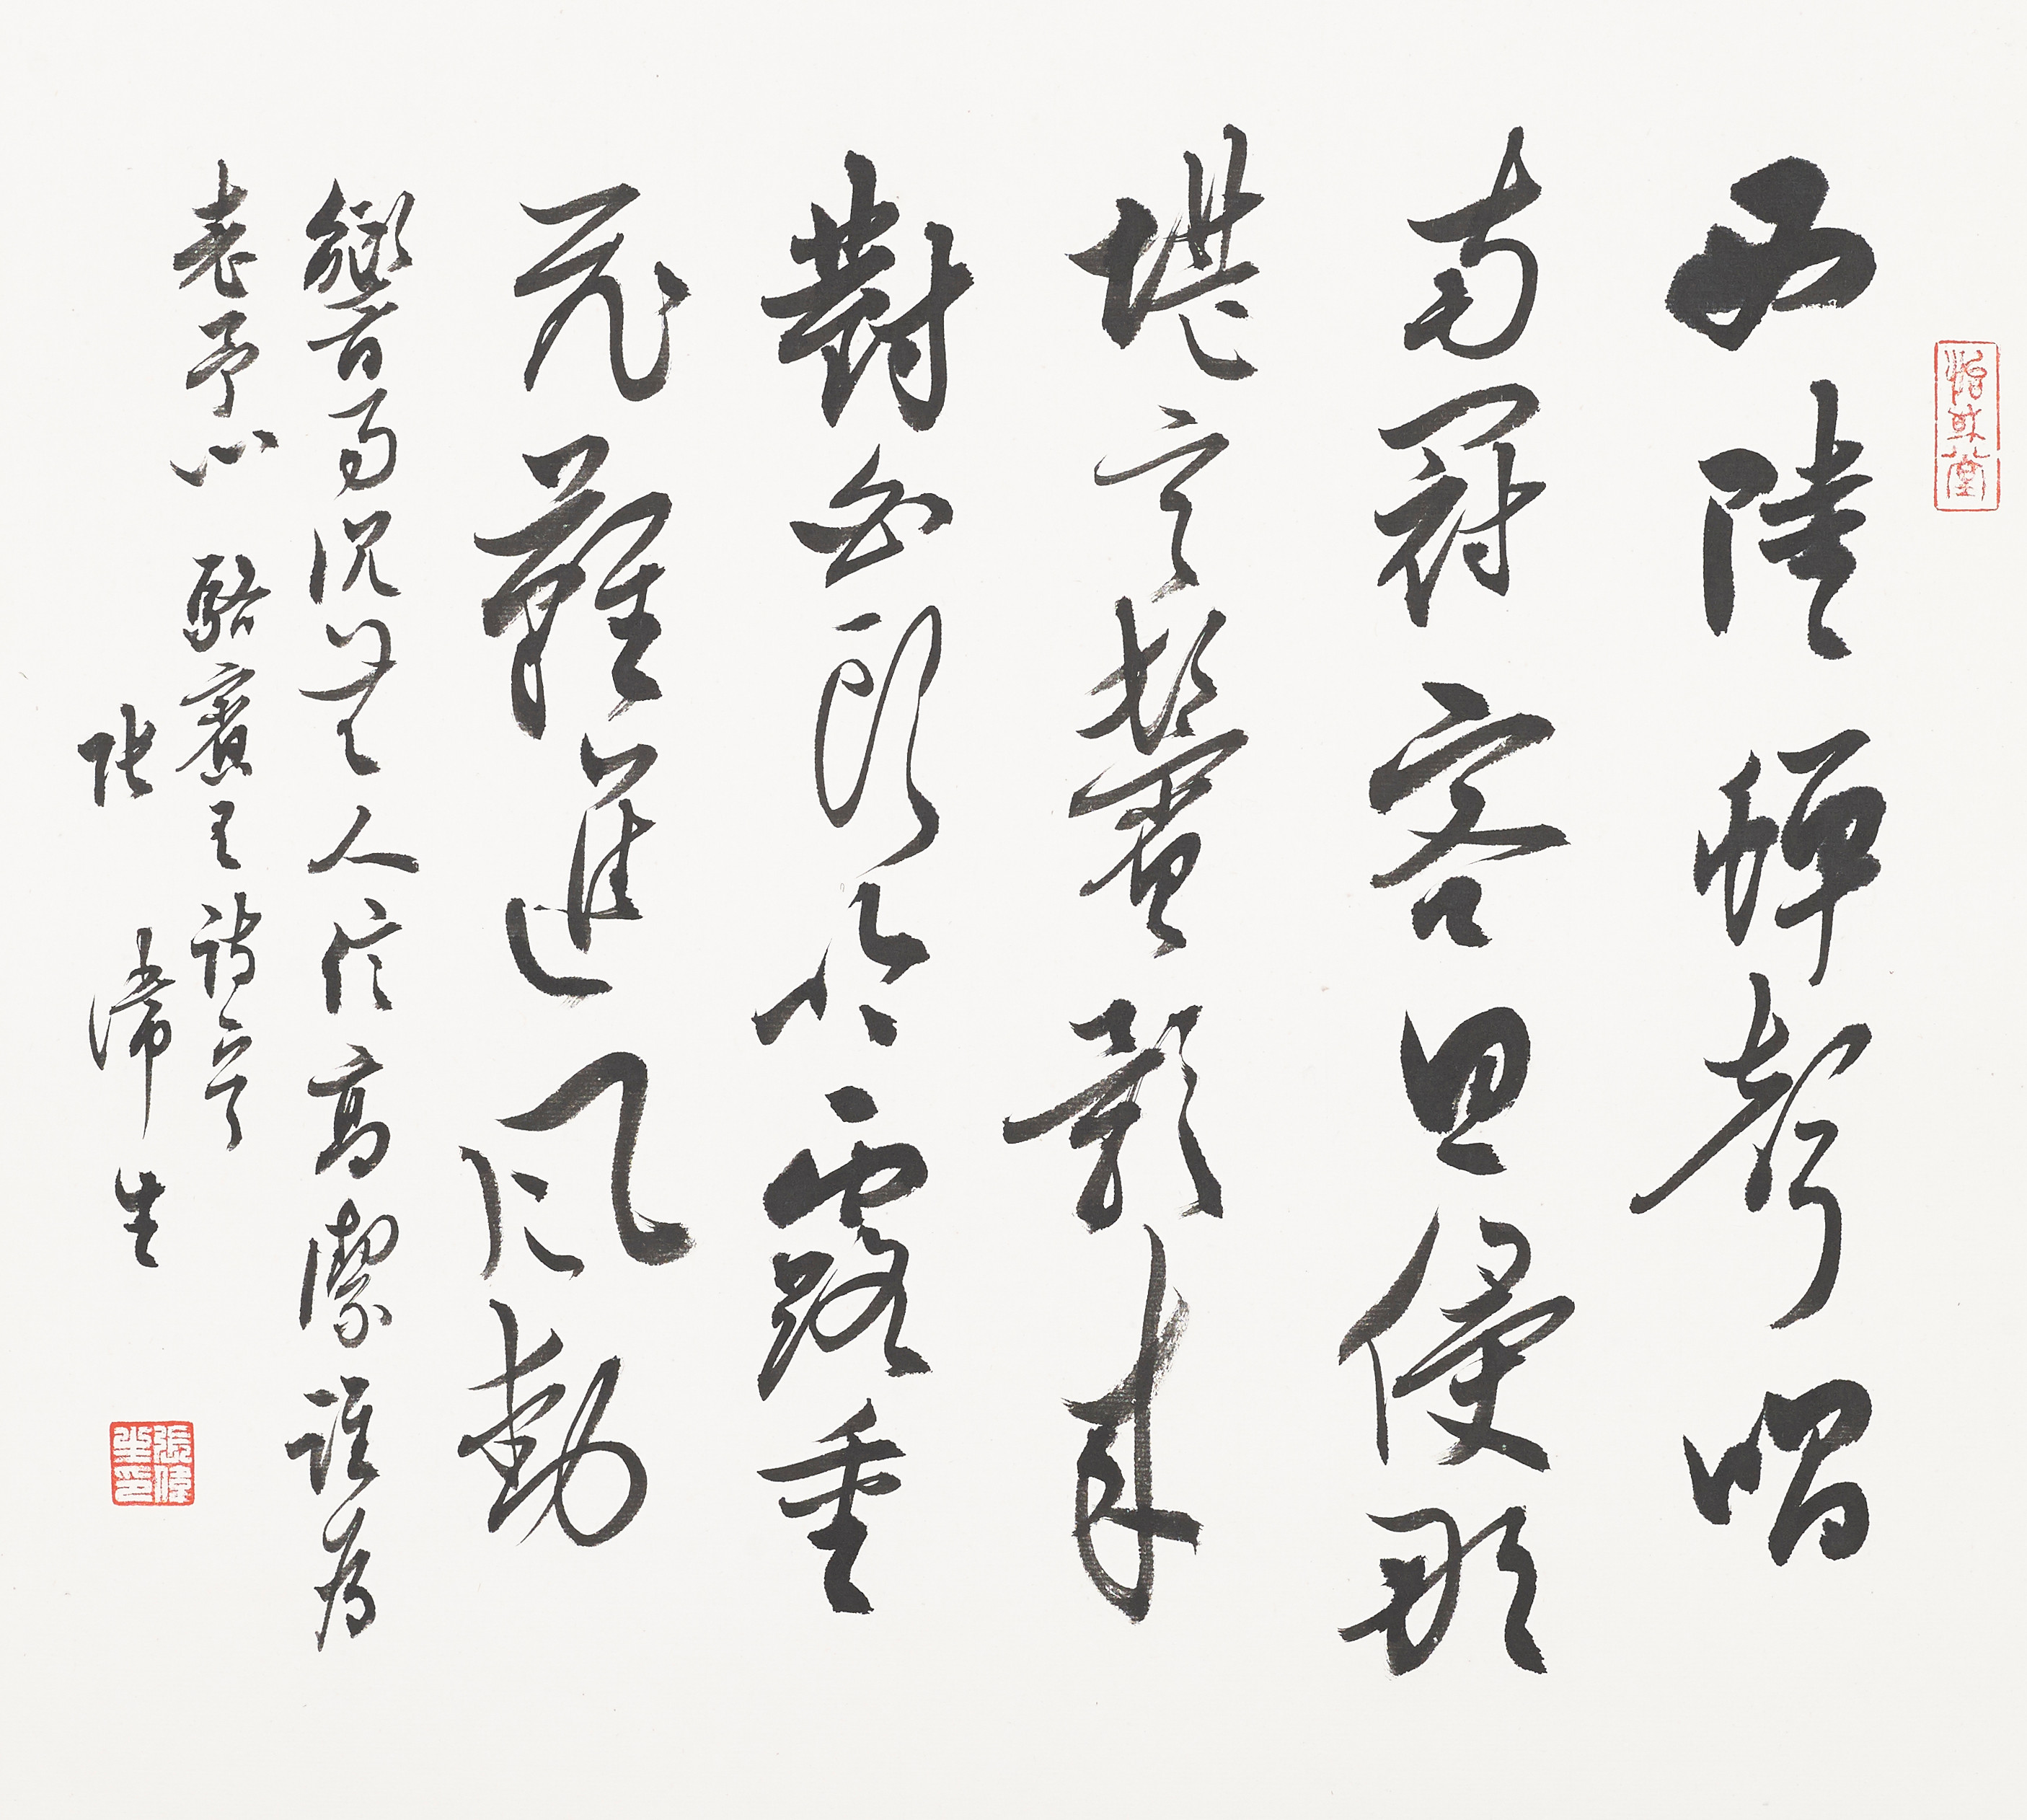 西陸蟬聲唱
南冠客思侵那
堪玄鬢影來
對白頭吟露重
飛難進風動
響易沉無人信高潔誰為
表予心 駱賓王詩
張偉生
張偉生印